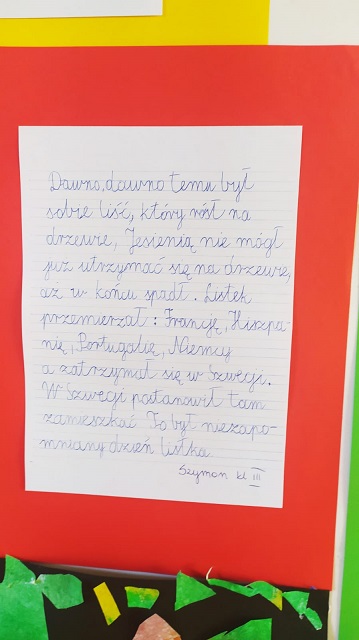 Dawno, dawno temu był
sobie liść, który rósł na
drzewie, Jesienią nie mógł
już utrzymać się na drzewie,
aż w końcu spadł. Listek
przemierzał: Francję, Hiszpa-
nię, Portugalię, Niemcy
a zatrzymał się w Szwecji.
W Szwecji postanowił tam
zamieszkać. To był niezapo-
mniany dzień listka.
Szymon kl III